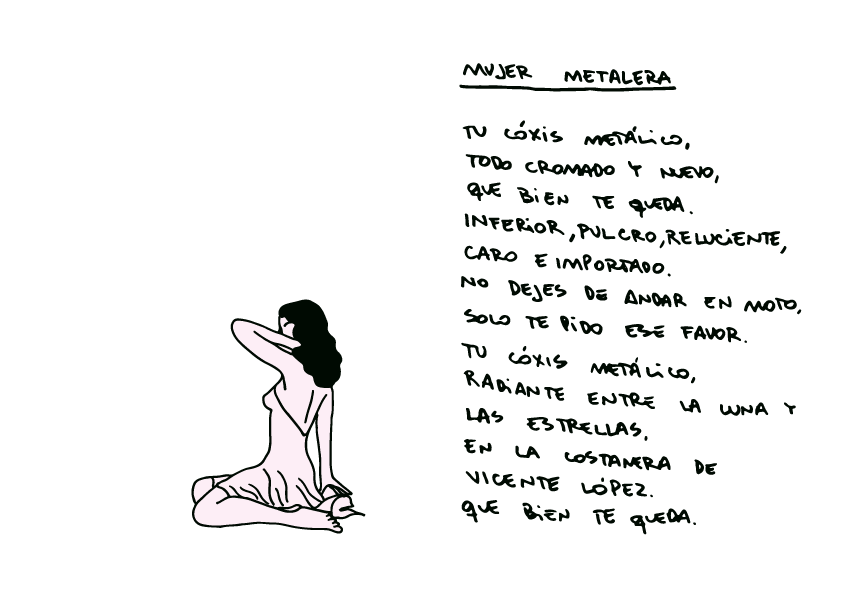 MUJER METALERA
TU CÓXIS METÁLICO,
TODO CROMADO Y NUEVO,
QUE BIEN TE QUEDA.
INFERIOR, PULCRO, RELUCIENTE,
CARO E IMPORTADO.
NO DEJES DE ANDAR EN MOTO,
SOLO TE PIDO ESE FAVOR.
TU CÓXIS METÁLICO,
RADIANTE ENTRE LA LUNA Y
LAS ESTRELLAS,
EN LA COSTANERA DE
VICENTE LÓPEZ.
QUE BIEN TE QUEDA.